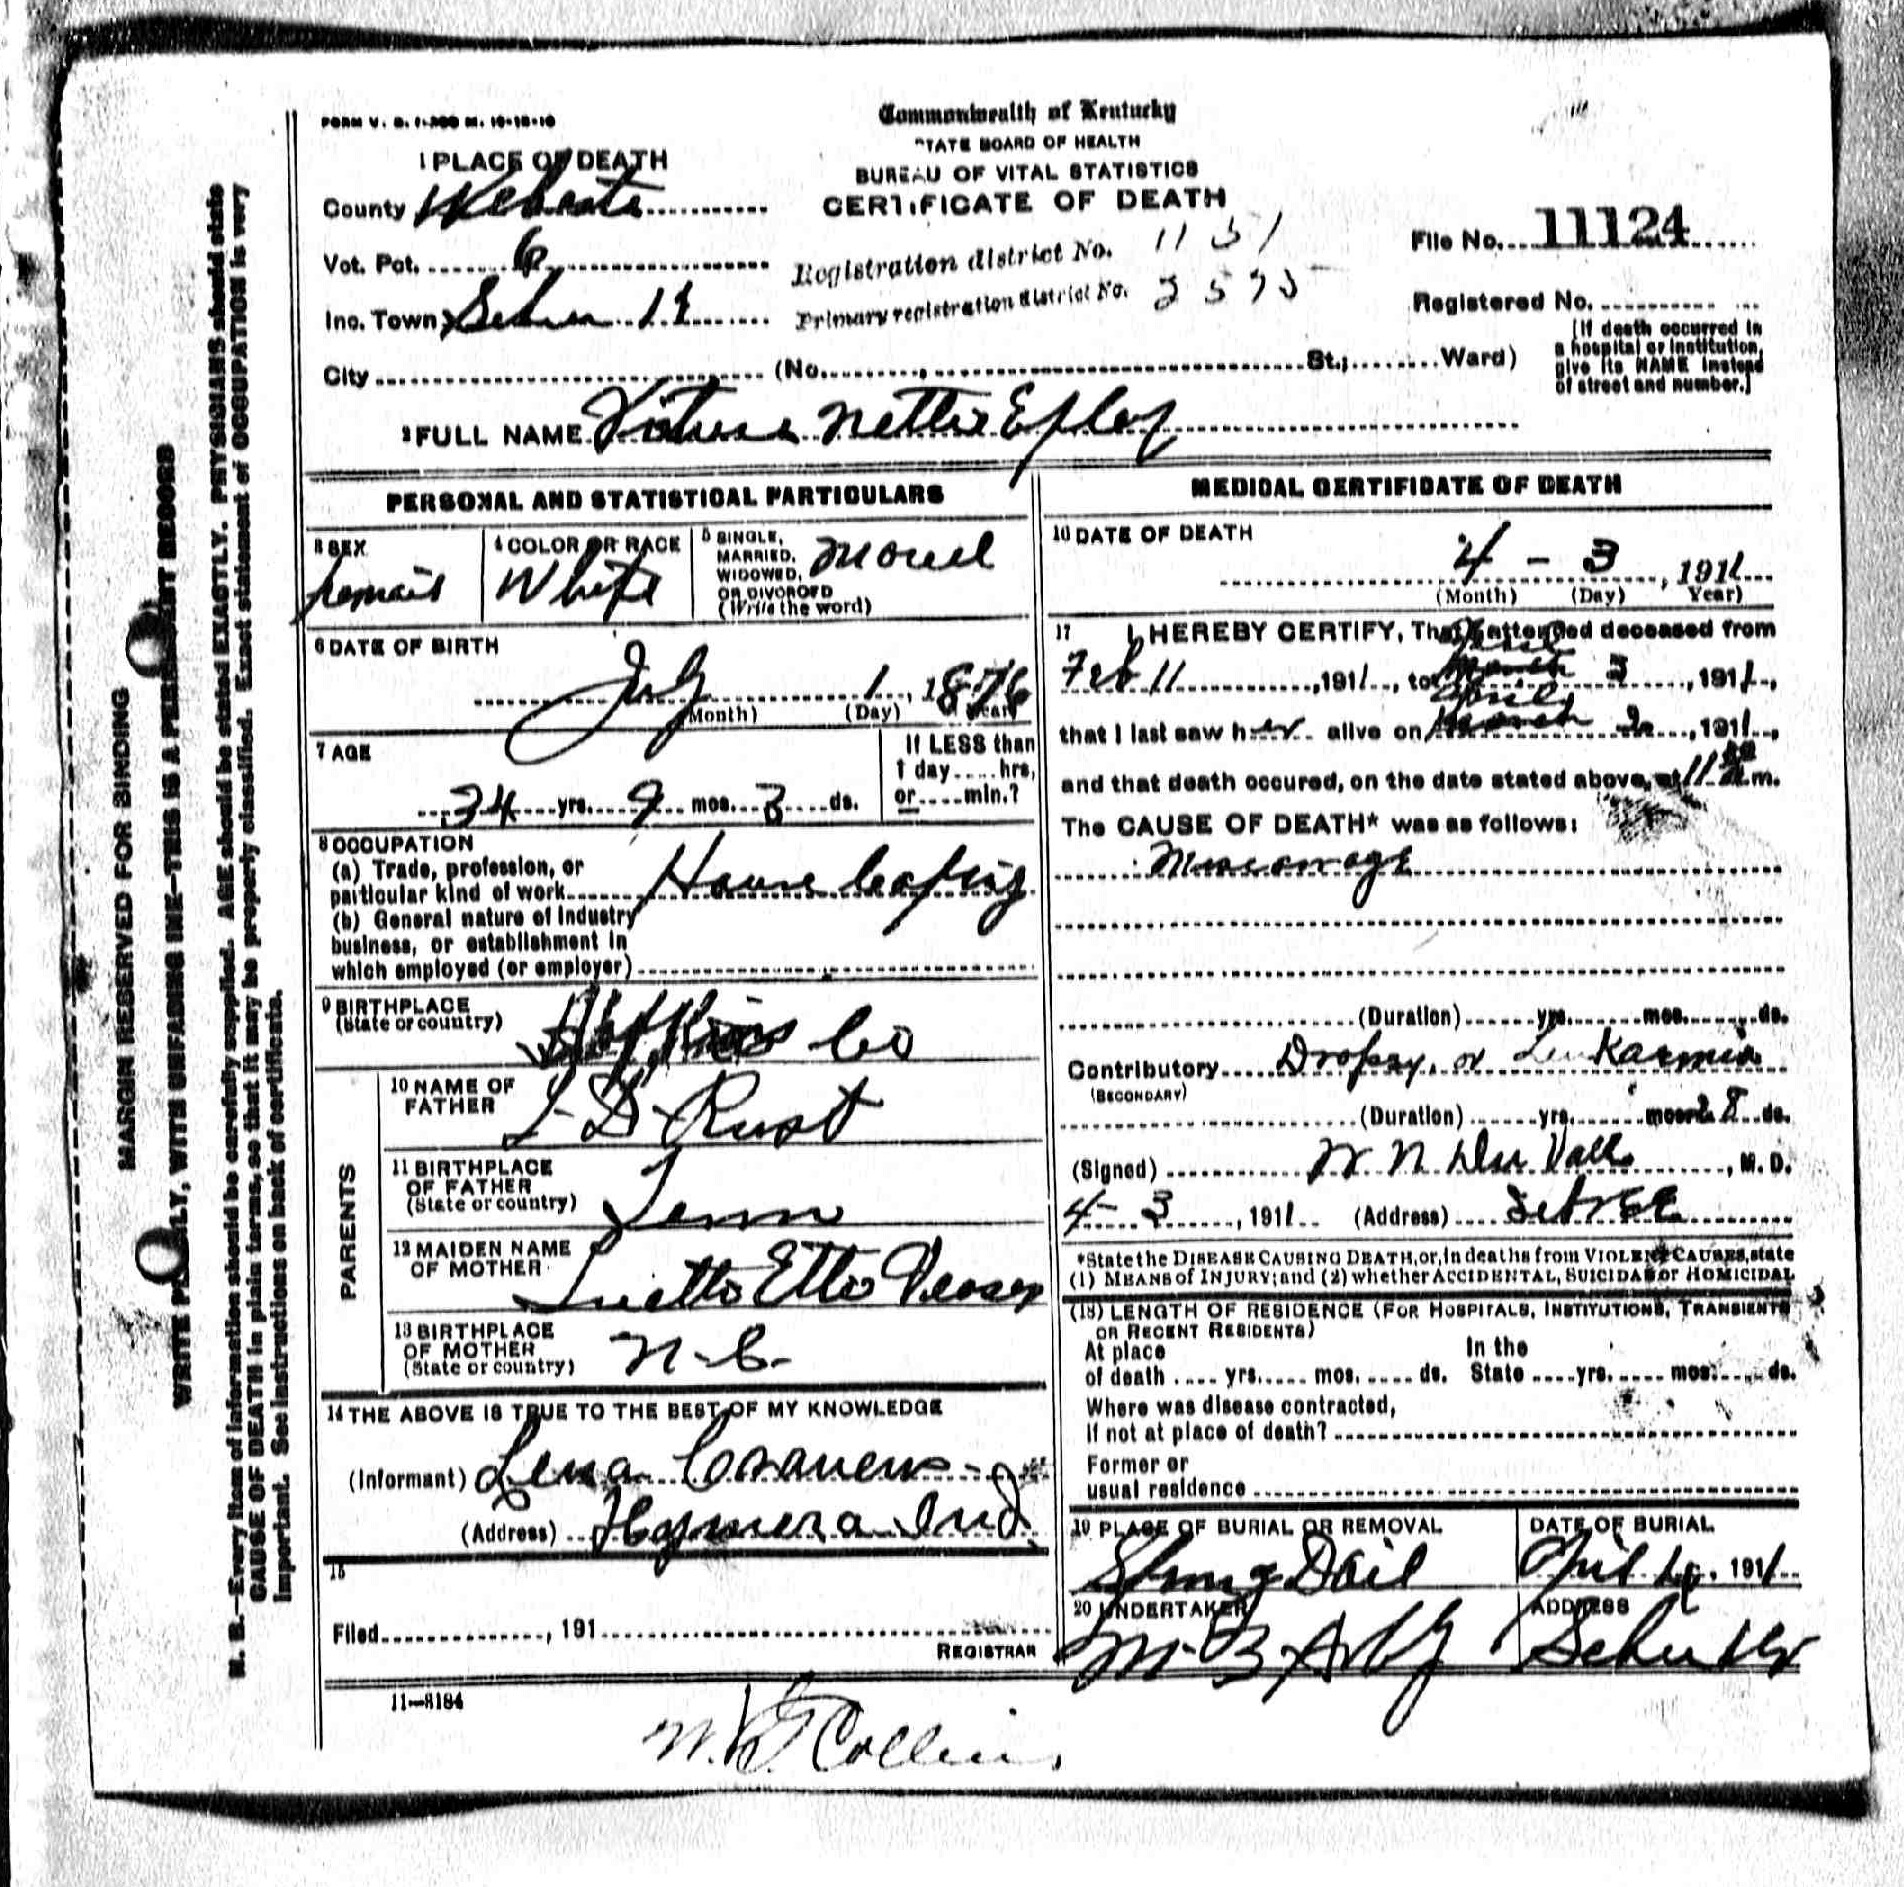 FORM V. S. 1-200 M. 10-18-10
Commonwealth of Kentucky
STATE BOARD OF HEALTH
BUREAU OF VITAL STATISTICS
CERTIFICATE OF DEATH
1 PLACE OF DEATH
County Webster
Vot. Pct. 6
Inc. Town Sebree
City (No. St.; Ward)
Registration district No. 1151
Primary registration district No. 2575
File No. 11124
Registered No.
[If death occurred in
a hospital or institution,
give its NAME instead
of street and number.]
2 FULL NAME Nettie Epley
PERSONAL AND STATISTICAL PARTICULARS
3 SEX
Female
4 COLOR OR RACE
White
5 SINGLE,
MARRIED,
WIDOWED,
OR DIVORCED
(Write the word)
6 DATE OF BIRTH
July 1, 1876
(Month) (Day) (Year)
7 AGE
34 yrs. 9 mos. 3 ds.
If LESS than
1 day hrs,
or min.?
8 OCCUPATION
(a) Trade, profession, or
particular kind of work House keeping
(b) General nature of Industry
business, or establishment in
which employed (or employer)
9 BIRTHPLACE
(State or country)
Hopkins Co
PARENTS
10 NAME OF
FATHER
L D Rust
11 BIRTHPLACE
OF FATHER
(State or country)
Tenn
12 MAIDEN NAME
OF MOTHER
Etter
13 BIRTHPLACE
OF MOTHER
(State or country)
N-C-
14 THE ABOVE IS TRUE TO THE BEST OF MY KNOWLEDGE
(Informant) Lena Cravens
(Address) Hymera Ind
15
Filed , 191
REGISTRAR
11-8184
Collins
MEDICAL CERTIFICATE OF DEATH
16 DATE OF DEATH
4 - 3, 1911
(Month) (Day) Year)
17 I HEREBY CERTIFY, That I attended deceased from
Feb 11, 1911, to April 3, 1911,
that I last saw her alive on April 2, 1911,
and that death occured, on the date stated above, at 11 m.
The CAUSE OF DEATH* was as follows:
Miscarrage
(Duration) yrs. mos. ds.
Contributory Dropsy, or Leukaemia
(SECONDARY)
(Duration) yrs. mos. 28 ds.
(Signed) N Du Vall, M. D.
4-3, 1911 (Address) Sebree
*State the DISEASE CAUSING DEATH, or, in deaths from VIOLENT CAUSES, state
(1) MEANS of INJURY; and (2) whether ACCIDENTAL, SUICIDAL or HOMICIDAL
(18) LENGTH OF RESIDENCE (FOR HOSPITALS, INSTITUTIONS, TRANSIENTS
OR RECENT RESIDENTS)
At place
of death yrs. mos. ds.
In the
State yrs. mos. ds.
Where was disease contracted,
If not at place of death?
Former or
usual residence
19 PLACE OF BURIAL OR REMOVAL
DATE OF BURIAL
April, 1911
20 UNDERTAKER
ADDRESS
Sebree Ky
MARGIN RESERVED FOR BINDING
WRITE PLAINLY, WITH UNFADING INK-THIS IS A PERMANENT RECORD
N. B.-Every item of information should be carefully supplied. AGE should be stated EXACTLY. PHYSICIANS should state
CAUSE OF DEATH in plain terms, so that it may be properly classified. Exact statement of OCCUPATION is very
important. See instructions on back of certificate.